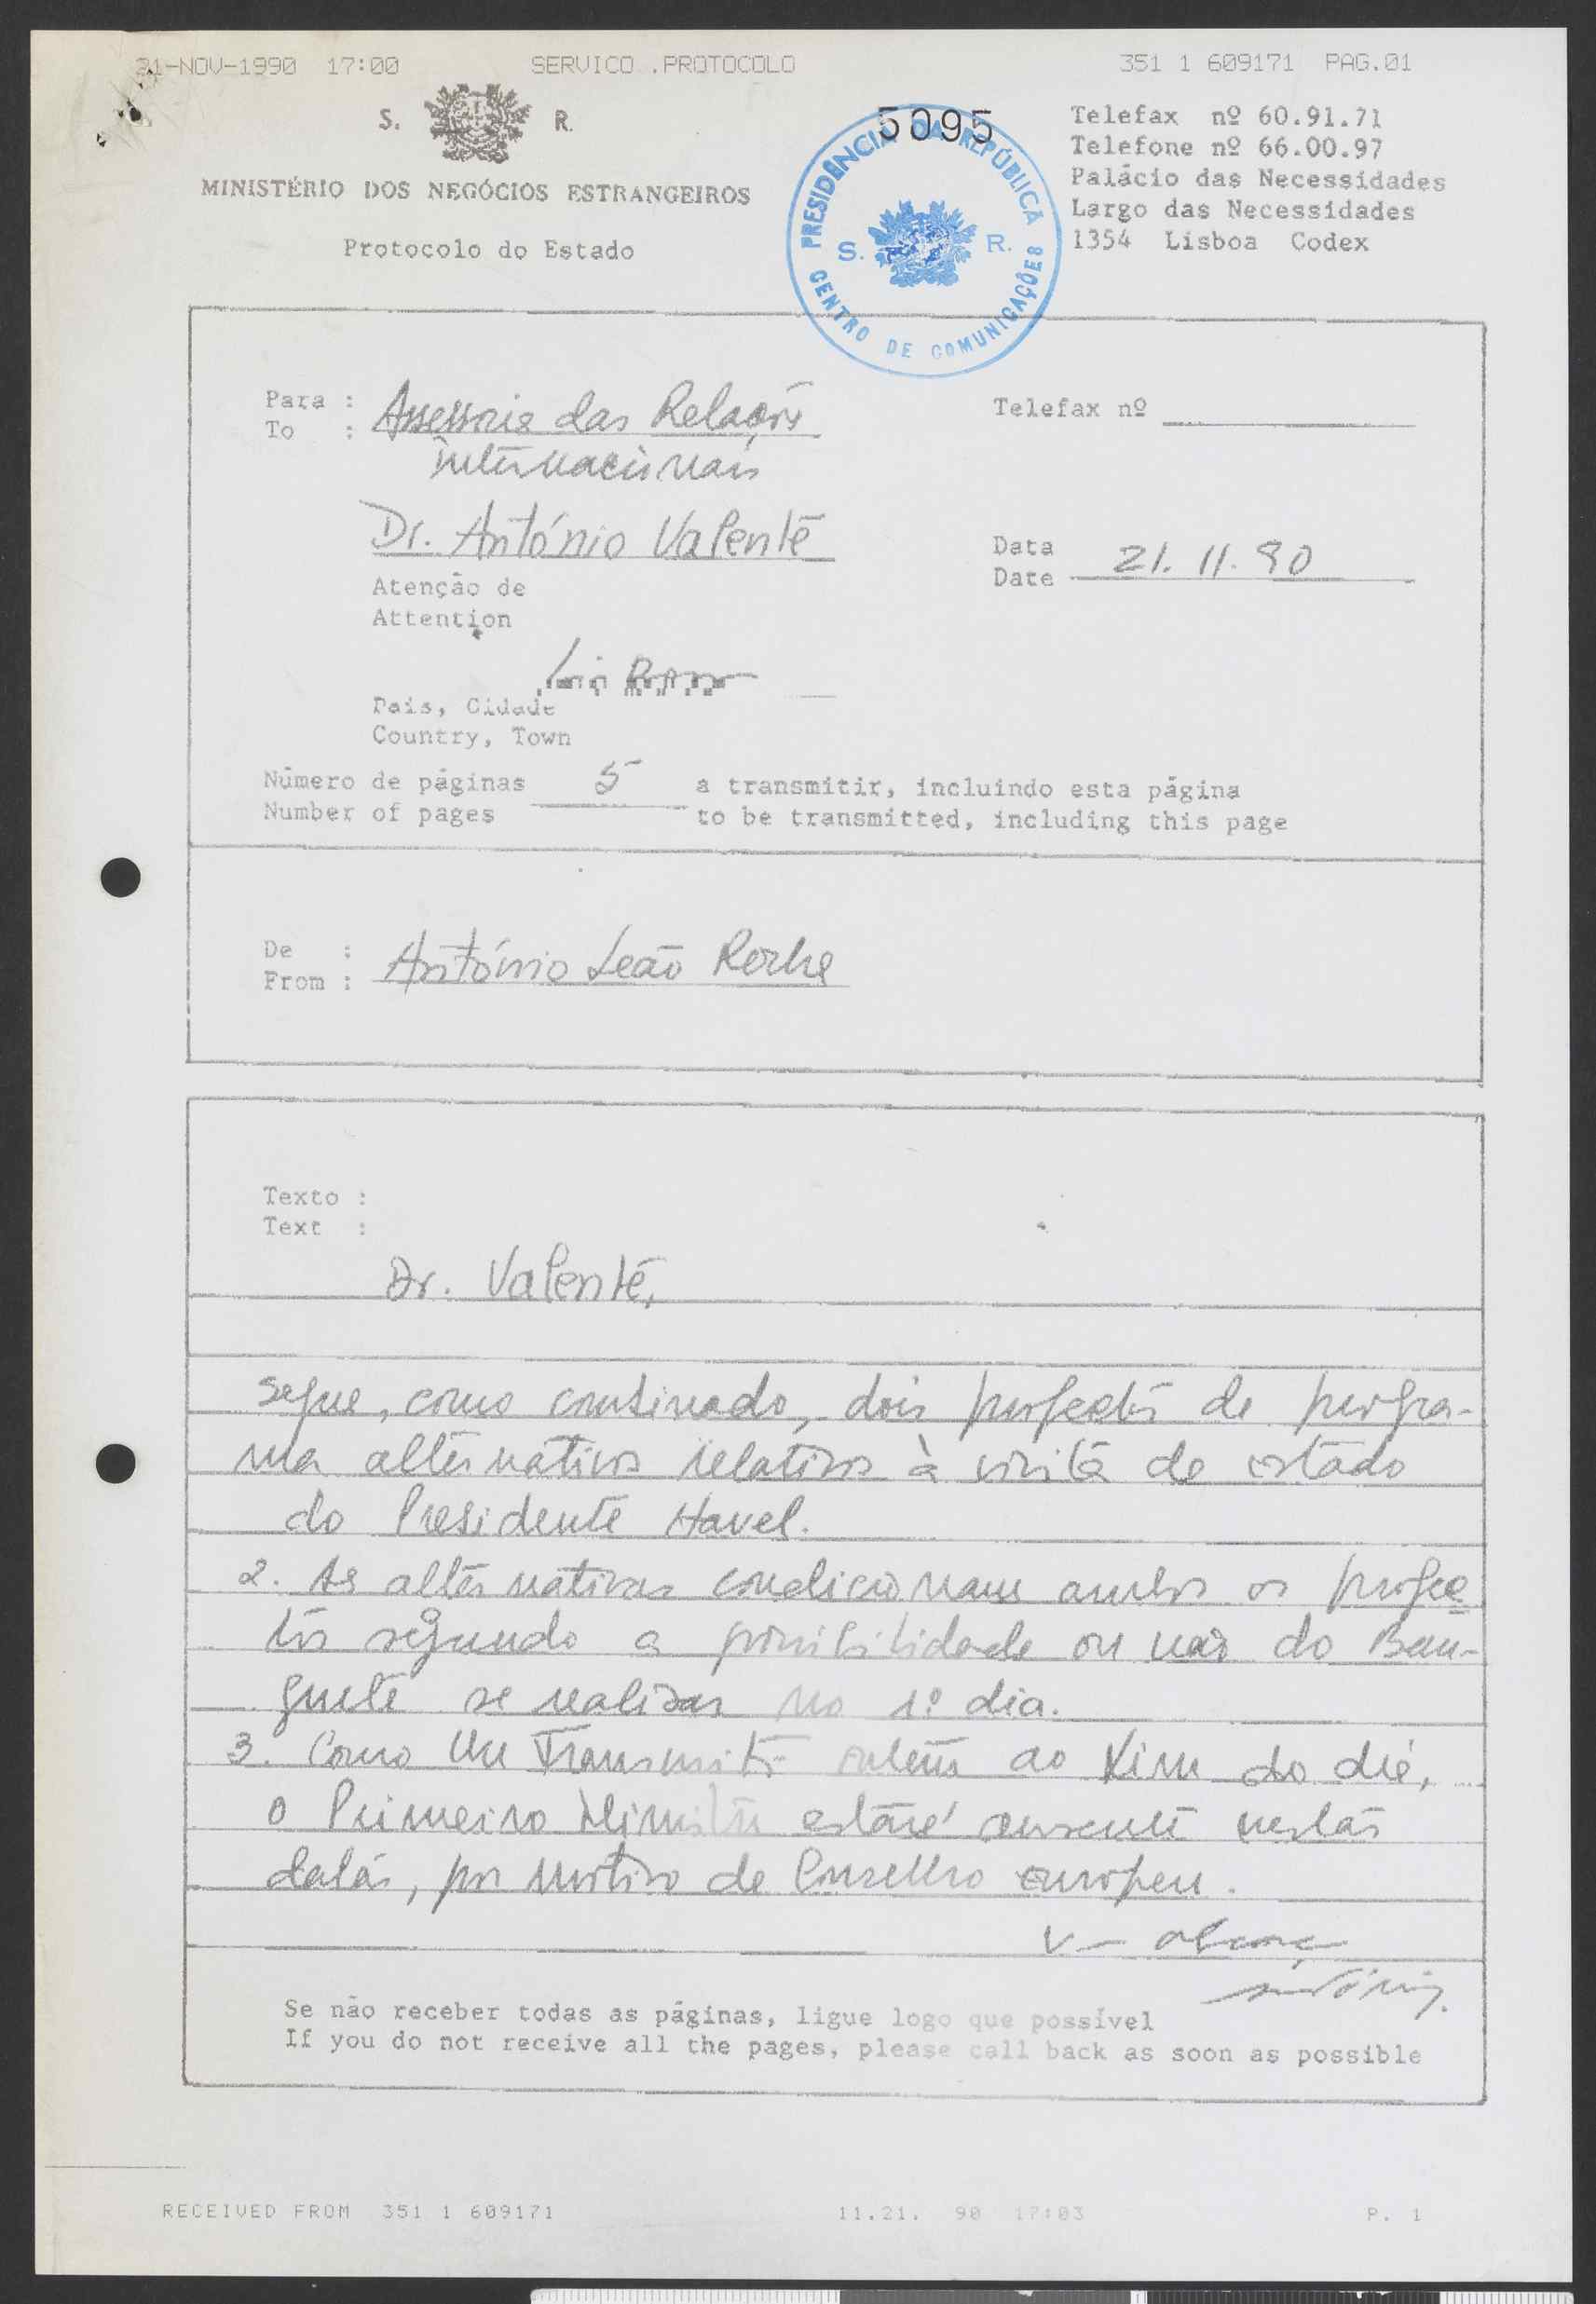 21-NOV-1990 17:00 SERVICO .PROTOCOLO 351 1 609171 PAG.01
S. R.
MINISTÉRIO DOS NEGÓCIOS ESTRANGEIROS
Protocolo do Estado
5095
PRESIDÊNCIA DA REPÚBLICA
S. R.
CENTRO DE COMUNICAÇÕES
Telefax nº 60.91.71
Telefone nº 66.00.97
Palácio das Necessidades
Largo das Necessidades
1354 Lisboa Codex
Para : Assessoria das Relações
To :
Internacionais
Telefax nº
Dr. António Valente
Data
Date 21.11.90
Atenção de
Attention
País, Cidade
Country, Town
Número de páginas 5 a transmitir, incluindo esta página
Number of pages to be transmitted, including this page
De :
From : António Leão Rocha
Texto :
Text :
Dr. Valente,
segue, como combinado, dois projectos de progra-
ma alternativos relativos à visita de estado
do Presidente Havel.
2. As alternativas condicionam ambos os projec
tos segundo a possibilidade ou não do Ban-
quete se realizar no 1º dia.
3. Como lhe transmiti ontem ao fim do dia,
o Primeiro Ministro estará ausente nestas
datas, por motivo de Conselho europeu.
António
Se não receber todas as páginas, ligue logo que possível
If you do not receive all the pages, please call back as soon as possible
RECEIVED FROM 351 1 609171 11.21. 90 17:03 P. 1